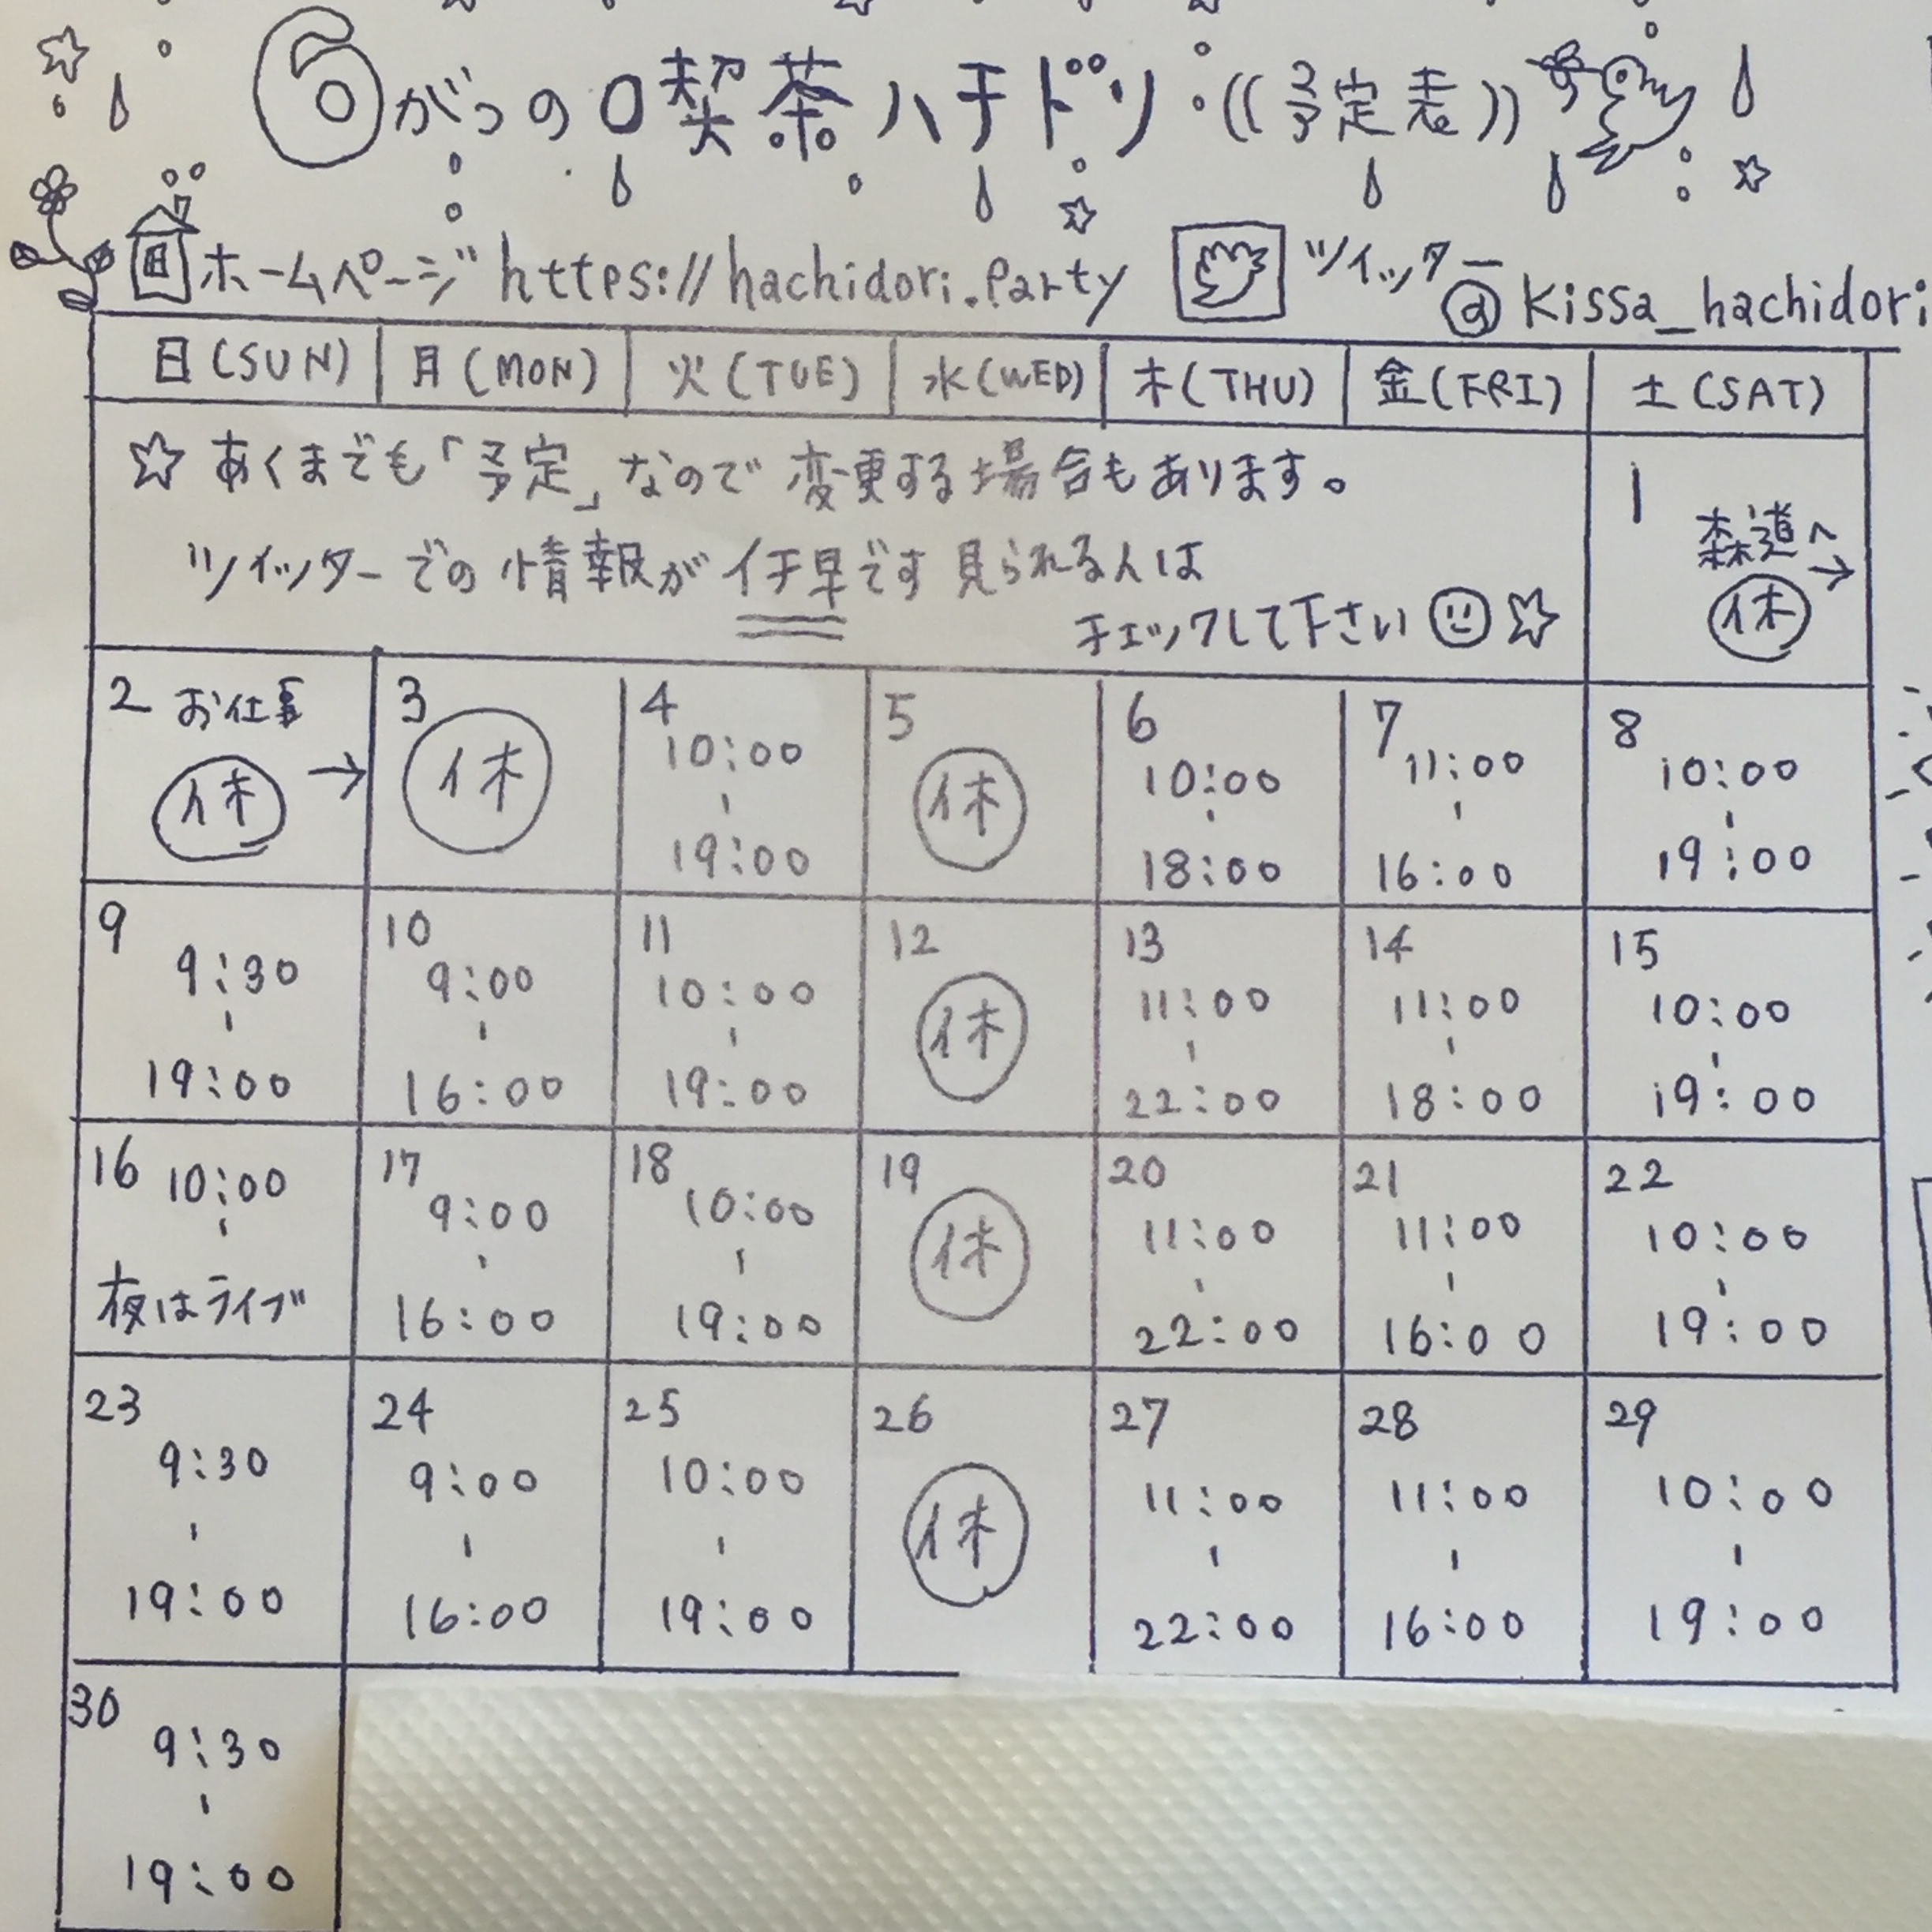 6がつの喫茶ハチドリ((予定表))
ホームページ https://hachidori.party ツイッター @kissa_hachidori
日(SUN) 月(MON) 火(TUE) 水(WED) 木(THU) 金(FRI) 土(SAT)
☆あくまでも「予定」なので変更する場合もあります。
ツイッターでの情報がイチ早です見られる人は
チェックして下さい☆
1
森道へ→
休
2 お仕事
休→
3
休
4
10:00
-
19:00
5
休
6
10:00
-
18:00
7
11:00
-
16:00
8
10:00
-
19:00
9
9:30
-
19:00
10
9:00
-
16:00
11
10:00
-
19:00
12
休
13
11:00
-
22:00
14
11:00
-
18:00
15
10:00
-
19:00
16 10:00
-
夜はライブ
17
9:00
-
16:00
18
10:00
-
19:00
19
休
20
11:00
-
22:00
21
11:00
-
16:00
22
10:00
-
19:00
23
9:30
-
19:00
24
9:00
-
16:00
25
10:00
-
19:00
26
休
27
11:00
-
22:00
28
11:00
-
16:00
29
10:00
-
19:00
30
9:30
-
19:00